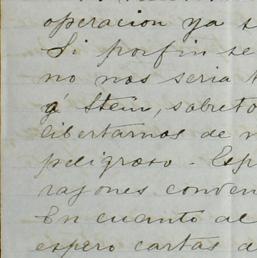 operacion ya s
Si porfin se
no nos seria
á Stein, sobreto
libertarnos de
peligroso - Esp
razones conven
En cuanto al
espero cartas d